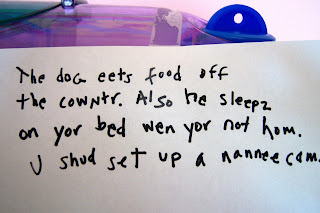 The dog eets food off
the cowntr. Also he sleepz
on yor bed wen yor not hom.
U shud set up a nannee cam.